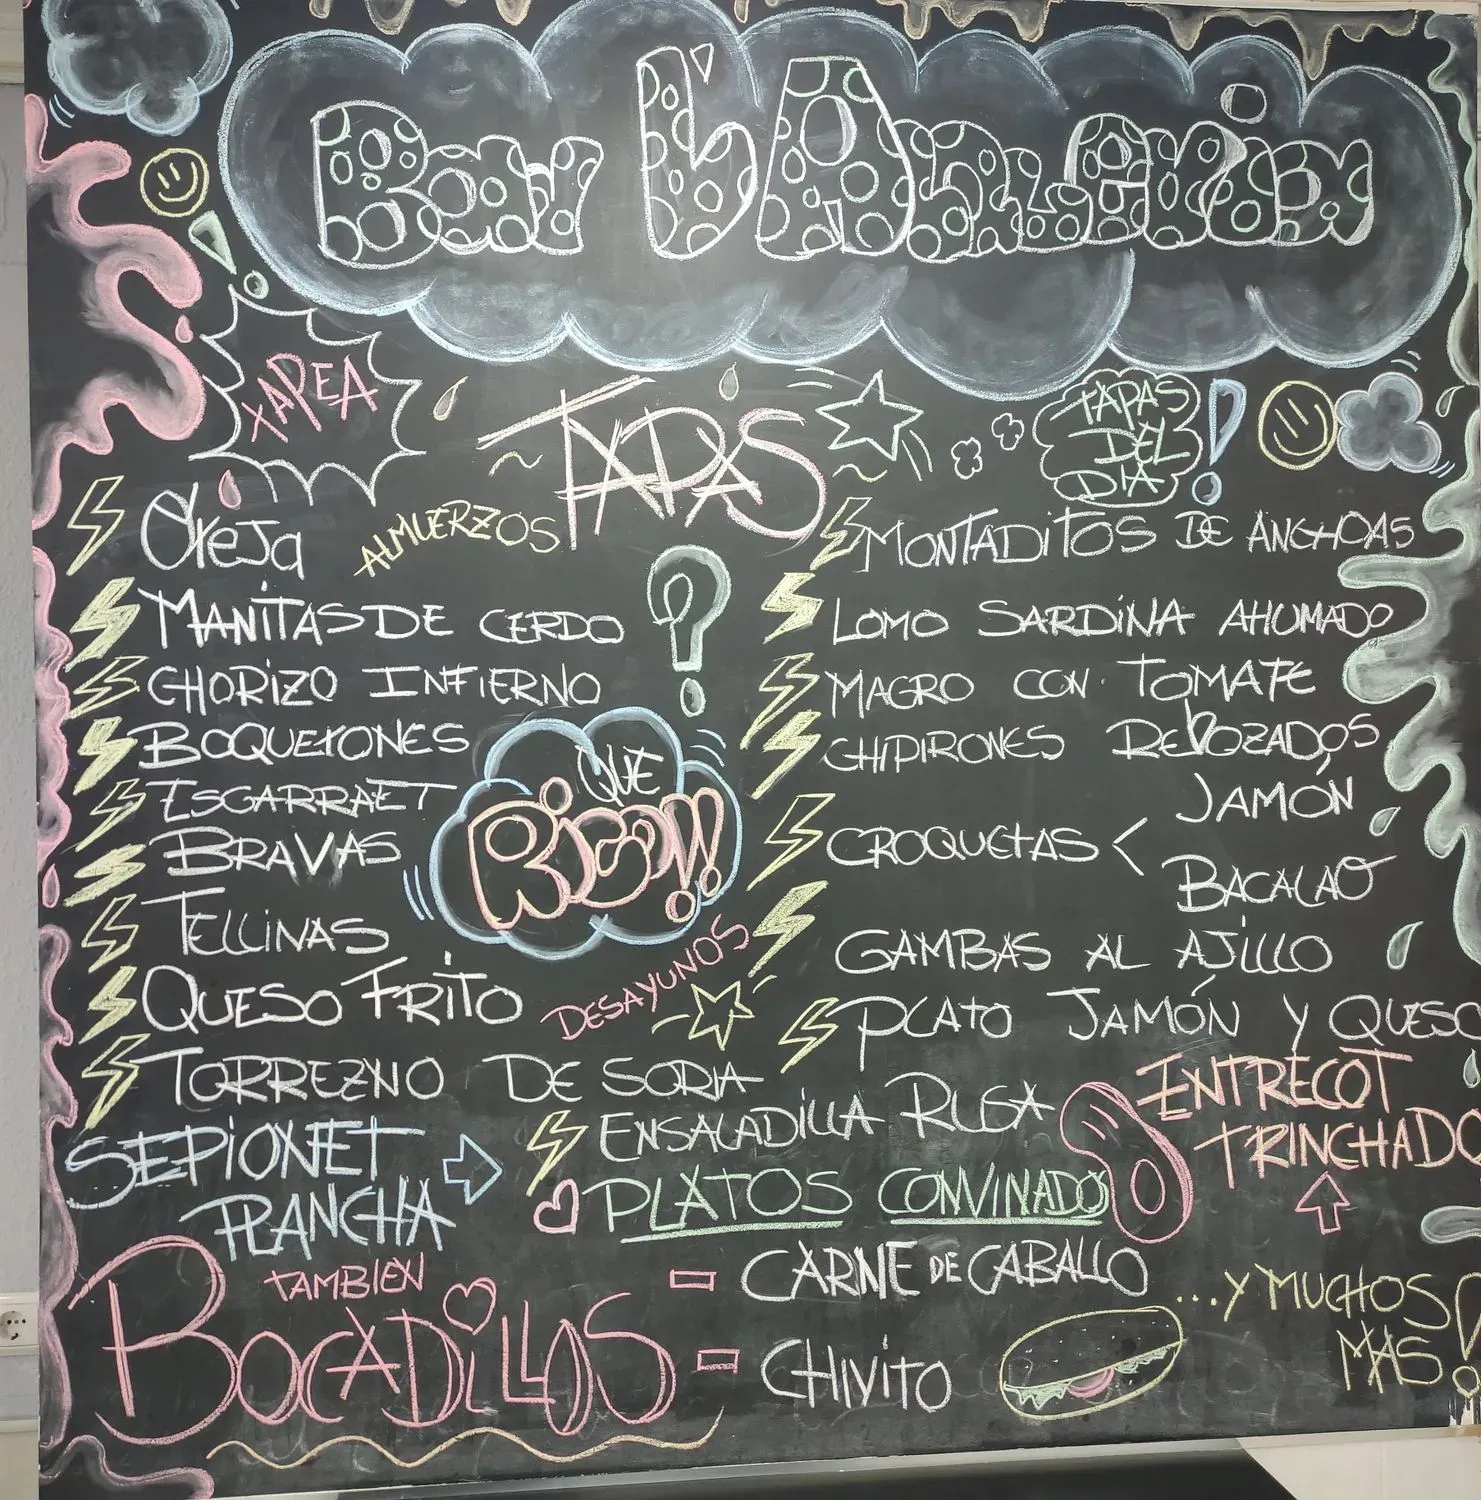 Bar L'Analenia
XAPEA
TAPAS
TAPAS
DEL
DIA!
OreJa
ALMUERZOS
MANITAS DE CERDO
CHORIZO INFIERNO
BOQUERONES
ESGARRAET
BRAVAS
TELLINAS
QUESO FRITO
TORREZNO DE SORIA
QUE
Rico!!
?
DESAYUNOS
MONTADITOS DE ANCHOAS
LOMO SARDINA AHUMADO
MAGRO CON TOMATE
CHIPIRONES REBOZADOS
CROQUETAS < JAMÓN
BACALAO
GAMBAS AL AJILLO
PLATO JAMÓN Y QUESO
ENSALADILLA RUSA
ENTRECOT
TRINCHADO
SEPIONET
PLANCHA
PLATOS CONVINADOS
TAMBIEN
BOCADILLOS
- CARNE DE CABALLO
- CHIVITO
...Y MUCHOS
MAS!